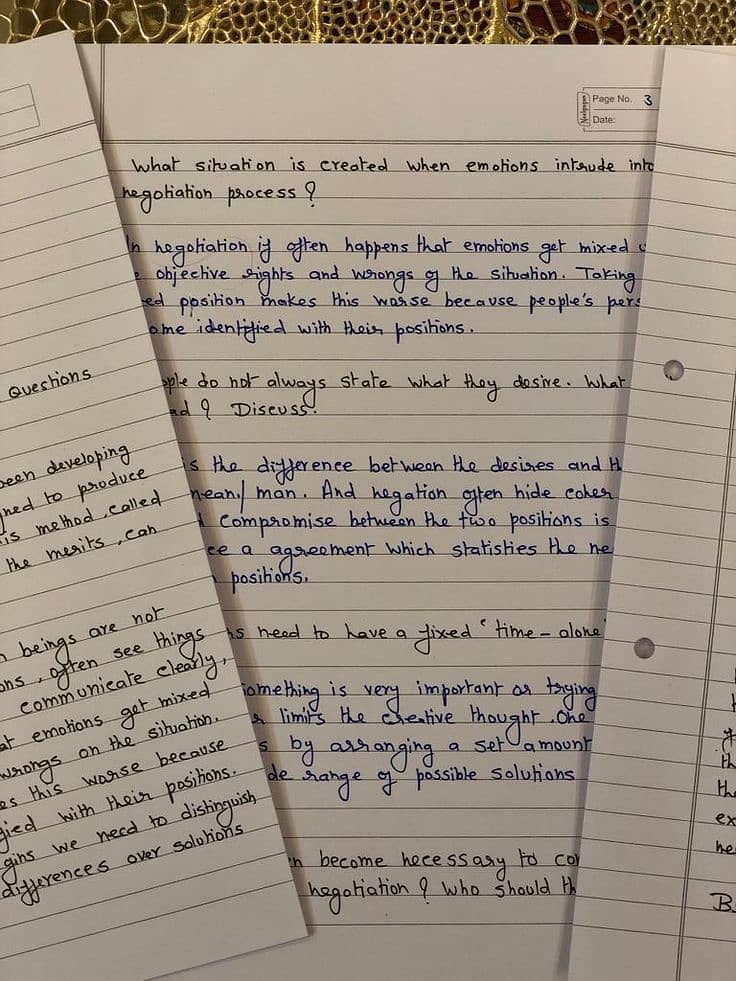 Page No. 3
Date:
What situation is created when emotions intrude into
negotiation process ?
In negotiation if often happens that emotions get mixed
objective rights and wrongs of the situation. Taking
position makes this worse because people's
identified with their positions.
do not always state what they desire. What
? Discuss.
is the difference between the desires and
man. And negation often hide
compromise between the two positions is
a agreement which statisties the
positions.
need to have a fixed ' time - alone
something is very important as trying
limits the creative thought. One
by arranging a set amount
range of possible solutions
become necessary to
negotiation ? Who should
Questions
been developing
to produce
is method, called
the merits, can
beings are not
, often see things
communicate clearly,
emotions get mixed
wrongs on the situation.
this worse because
with their positions.
we need to distinguish
differences over solutions
th
the
ex
he
B